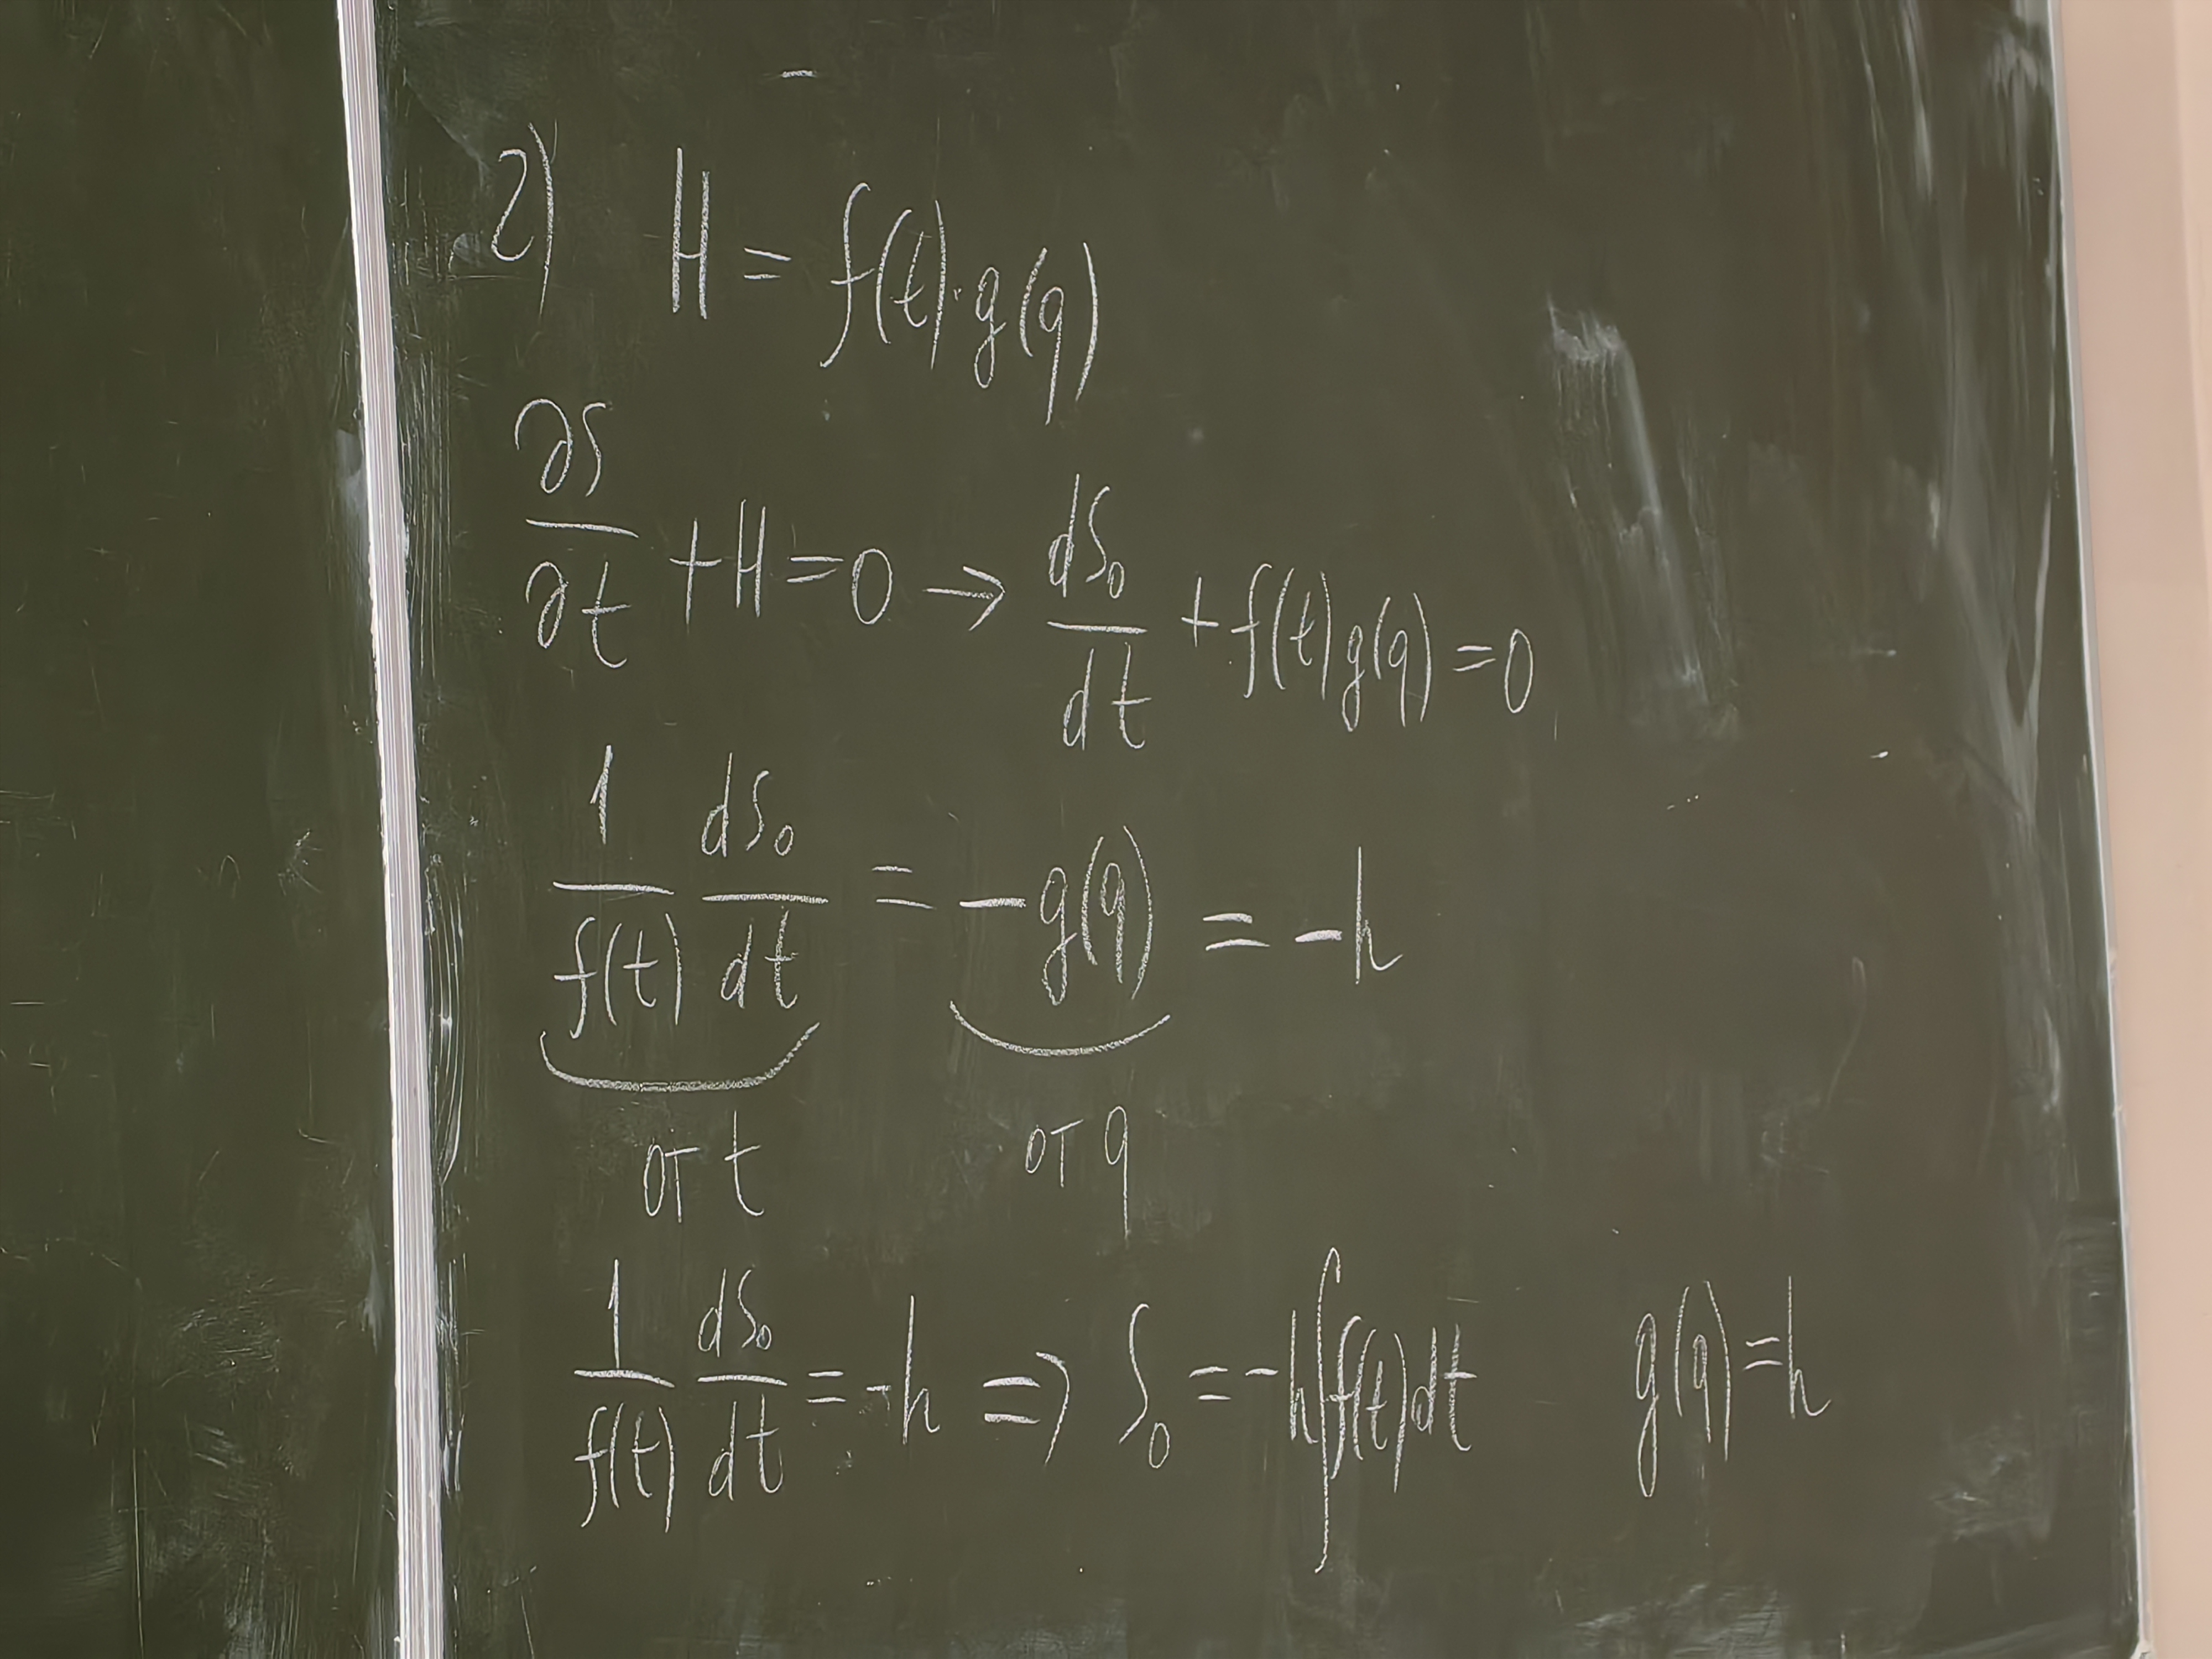 2) H = f(t)·g(q)
∂S/∂t + H = 0 → dS₀/dt + f(t)g(q) = 0
1/f(t) dS₀/dt = -g(q) = -h
от t от q
1/f(t) dS₀/dt = -h => S₀ = -h∫f(t)dt g(q) = h